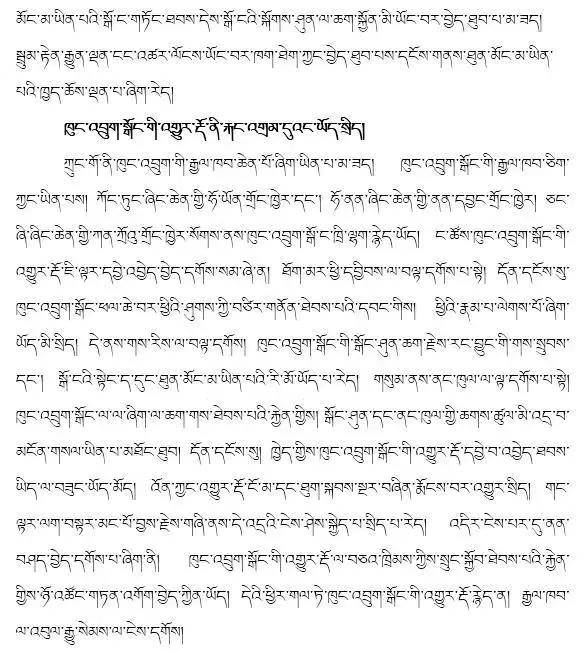 མོང་མ་ཡིན་པའི་སྒོ་ང་གཏོང་ཐབས་དེས་སྒོ་ངའི་སྐོགས་ཤུན་ལ་ཆག་སྐྱོན་མི་ཡོང་བར་བྱེད་ཐུབ་པ་མ་ཟད།
སྦྲུམ་རྟེན་རྒྱུན་ལྡན་ངང་འཚར་ལོངས་ཡོང་བར་ཁག་ཐེག་ཀྱང་བྱེད་ཐུབ་པས་དངོས་གནས་ཐུན་མོང་མ་ཡིན་
པའི་ཁྱད་ཆོས་ལྡན་པ་ཞིག་རེད།
ཁུང་འབྲུག་སྒོང་གི་འགྱུར་རྡོ་ནི་རྐང་འགྲམ་དུའང་ཡོད་སྲིད།
ཀྲུང་གོ་ནི་ཁུང་འབྲུག་གི་རྒྱལ་ཁབ་ཆེན་པོ་ཞིག་ཡིན་པ་མ་ཟད། ཁུང་འབྲུག་སྒོང་གི་རྒྱལ་ཁབ་ཅིག་
ཀྱང་ཡིན་པས། ཀོང་ཏུང་ཞིང་ཆེན་གྱི་ཧོ་ཡོན་གྲོང་ཁྱེར་དང་། ཧོ་ནན་ཞིང་ཆེན་གྱི་ནན་དབྱང་གྲོང་ཁྱེར། ཅང་
ཞི་ཞིང་ཆེན་གྱི་ཀན་ཀྲོའུ་གྲོང་ཁྱེར་སོགས་ནས་ཁུང་འབྲུག་སྒོ་ང་ཁྲི་ལྷག་རྙེད་ཡོད། ང་ཚོས་ཁུང་འབྲུག་སྒོང་གི་
འགྱུར་རྡོ་ཇི་ལྟར་དབྱེ་འབྱེད་བྱེད་དགོས་སམ་ཞེ་ན། ཐོག་མར་ཕྱི་དབྱིབས་ལ་བལྟ་དགོས་པ་སྟེ། དོན་དངོས་སུ་
ཁུང་འབྲུག་སྒོང་ཕལ་ཆེ་བར་ཕྱིའི་ཤུགས་ཀྱི་བཙིར་གནོན་ཐེབས་པའི་དབང་གིས། ཕྱིའི་རྣམ་པ་ལེགས་པོ་ཞིག་
ཡོད་མི་སྲིད། དེ་ནས་གས་རིས་ལ་བལྟ་དགོས། ཁུང་འབྲུག་སྒོང་གི་སྒོང་ཤུན་ཆག་རྗེས་རང་བྱུང་གི་གས་སྲུབས་
དང་། སྒོ་ངའི་སྟེང་ད་དུང་ཐུན་མོང་མ་ཡིན་པའི་རི་མོ་ཡོད་པ་རེད། གསུམ་ནས་ནང་ཁུལ་ལ་ལྟ་དགོས་པ་སྟེ།
ཁུང་འབྲུག་སྒོང་ལ་ལ་ཞིག་ལ་ཆག་གས་ཐེབས་པའི་རྐྱེན་གྱིས། སྒོང་ཤུན་དང་ནང་ཁུལ་གྱི་ཆགས་ཚུལ་མི་འདྲ་བ་
མངོན་གསལ་ཡིན་པ་མཐོང་ཐུབ། དོན་དངོས་སུ། ཁྱེད་གྱིས་ཁུང་འབྲུག་སྒོང་གི་འགྱུར་རྡོ་དབྱེ་བ་འབྱེད་ཐབས་
ཡིད་ལ་བཟུང་ཡོད་མོད། འོན་ཀྱང་འགྱུར་རྡོ་ངོ་མ་དང་ཐུག་སྐབས་སྔར་བཞིན་རྨོངས་བར་འགྱུར་སྲིད། གང་
ལྟར་ལག་བསྟར་མང་པོ་བྱས་རྗེས་གཞི་ནས་དེ་འདྲའི་ངེས་ཤེས་སྐྱེད་པ་སྲིད་པ་རེད། འདིར་ངེས་པར་དུ་ནན་
བཤད་བྱེད་དགོས་པ་ཞིག་ནི། ཁུང་འབྲུག་སྒོང་གི་འགྱུར་རྡོ་ལ་བཅའ་ཁྲིམས་ཀྱིས་སྲུང་སྐྱོབ་ཐེབས་པའི་རྐྱེན་
གྱིས་ཉོ་འཚོང་གཏན་འགོག་བྱེད་ཀྱིན་ཡོད། དེའི་ཕྱིར་གལ་ཏེ་ཁུང་འབྲུག་སྒོང་གི་འགྱུར་རྡོ་རྙེད་ན། རྒྱལ་ཁབ་
ལ་འབུལ་རྒྱུ་སེམས་ལ་ངེས་དགོས།